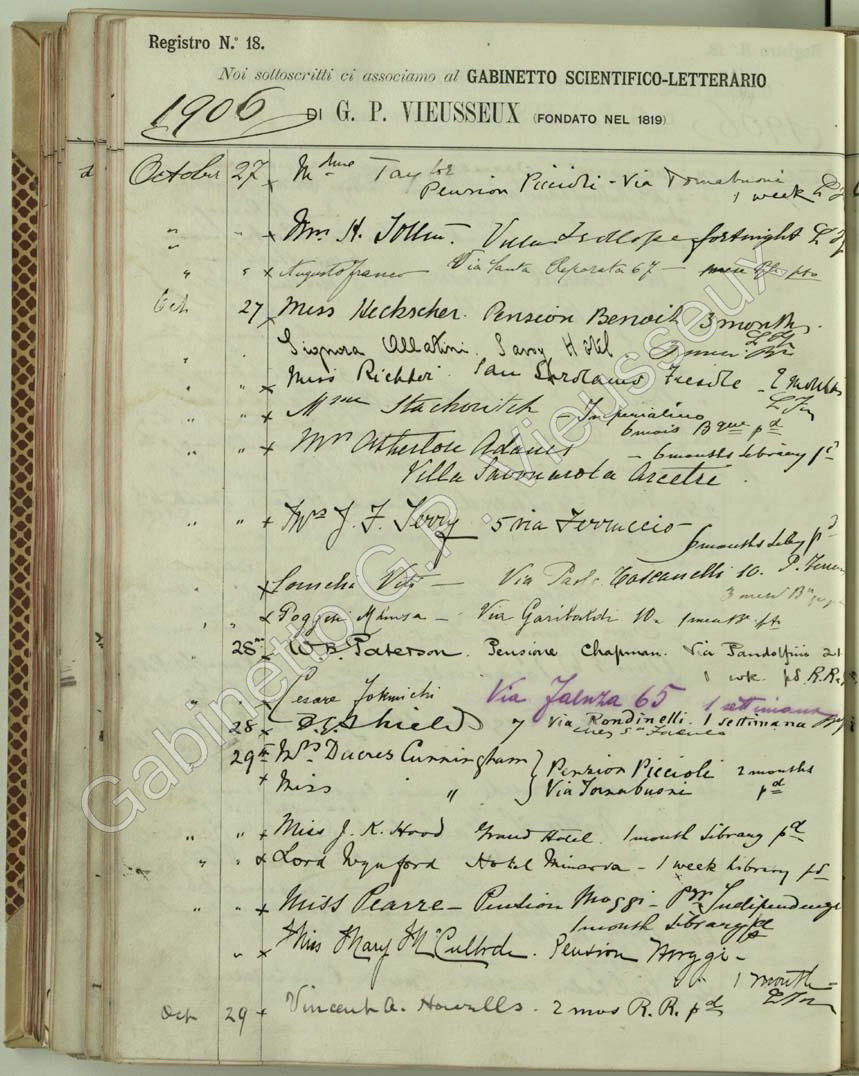 Registro N.° 18.
Noi sottoscritti ci associamo al GABINETTO SCIENTIFICO-LETTERARIO
1906 DI G. P. VIEUSSEUX (FONDATO NEL 1819)
October 27 x Mdme Taylor
Pension Piccioli - Via Tornabuoni
1 week
" " x H. Villa Trollope fortnight
" " x Augusto Franco - Via Santa Reparata 67 -
Oct 27 x Miss Heckscher. Pension Benoit 3 months.
" Signora Allatini. Savoy Hotel.
" x Miss Richter. San Girolamo Fiesole - 2 months
" " x Mme - Imperialino
6 mois Bque pd
" " x Mrs Atherton Adams - 6 months library pd
Villa Savonarola Arcetri.
" " x Mrs J. F. Terry 5 via Ferruccio -
6 months pd
x Via Paolo Toscanelli 10.
" " x Poggesi - Via Garibaldi 10.
28 x W. B. Paterson. Pensione Chapman. Via Pandolfini 21
1 wk. pd R.R.
" " x Cesare Via Faenza 65 1 settimana
28 - D. G. Shields 7 Via Rondinelli. 1 settimana
" 29th x Mrs Dacres Cunningham } Pension Piccioli 2 months
x Miss " } Via Tornabuoni pd
" " x Miss J. K. Hood Grand Hotel. 1 month Library pd
" " x Lord Wynford Hotel Minerva - 1 week library pd
" " x Miss Pearre - Pension Moggi - Indipendenza
1 month library pd
" x Miss Mary Pension Moggi -
1 month -
Oct 29 x Vincent A. Howells. 2 mos R.R. pd
Gabinetto G.P. Vieusseux